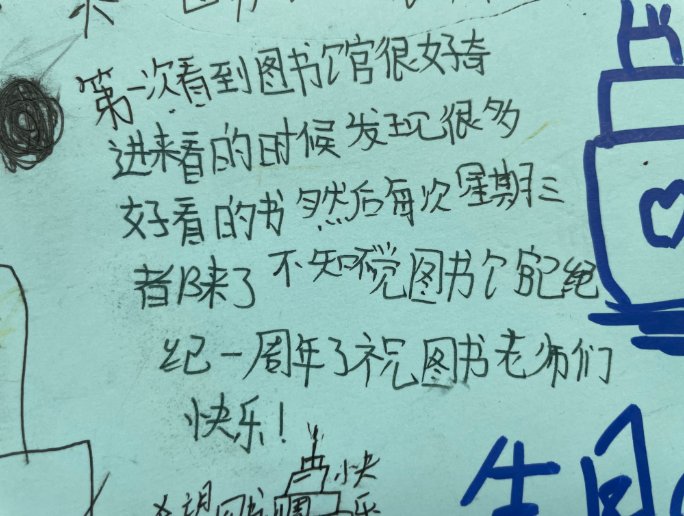 第一次看到图书馆很好奇
进来看的时候发现很多
好看的书然后每次星期三
都来了不知不觉图书馆已经
纪一周年了祝图书老师们
快乐！
快
乐
生日